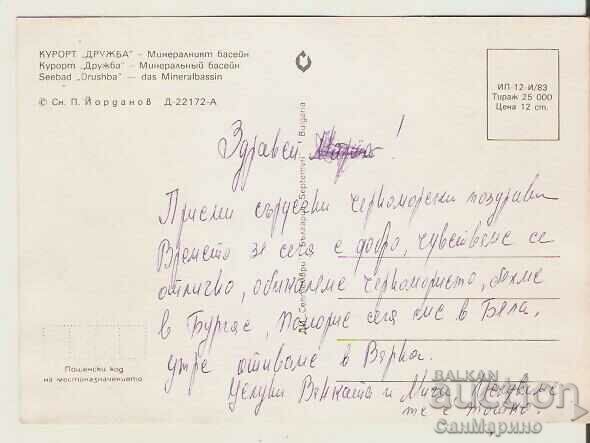 КУРОРТ „ДРУЖБА" – Минералният басейн
Курорт „Дружба" – Минеральный басейн
Seebad „Drushba" — das Mineralbassin
© Сн. П. Йорданов Д-22172-А
ИП-12-И/83
Тираж 25 000
Цена 12 ст.
ДИ „Септември" България Septemvri Bulgaria
Здравей !
Приеми сърдечни черноморски поздрави
Времето за сега е добро, чувстваме се
отлично, обикаляме черномористо, бяхме
в Бургас, Поморие сега сме в Бяла,
утре отиваме в Варна.
Целуни и Мими
те с
Пощенски код
на местоназначението
BALKAN
auction
СанМарино